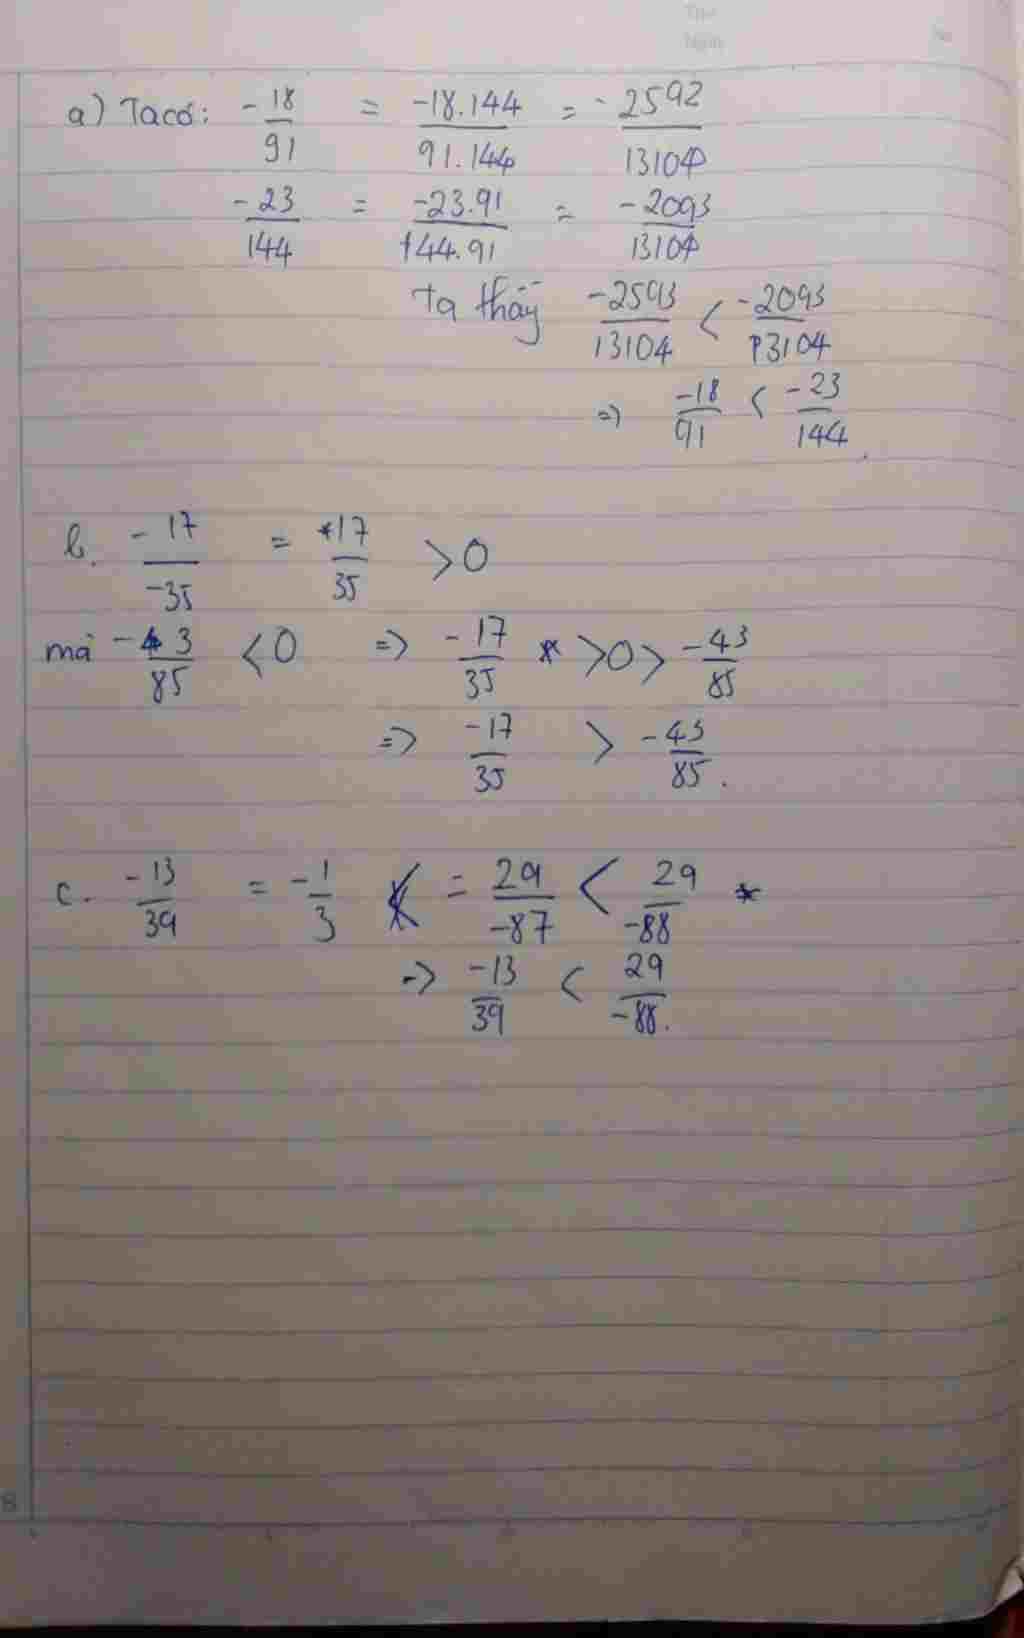 Thứ
Ngày
No
a) Ta có: -18/91 = -18.144/91.144 = -2592/13104
-23/144 = -23.91/144.91 = -2093/13104
Ta thấy -2593/13104 < -2093/13104
=> -18/91 < -23/144.
b. -17/-35 = 17/35 > 0
mà -43/85 < 0 => -17/35 > 0 > -43/85
=> -17/35 > -43/85.
c. -13/39 = -1/3 = 29/-87 < 29/-88
=> -13/39 < 29/-88.
8